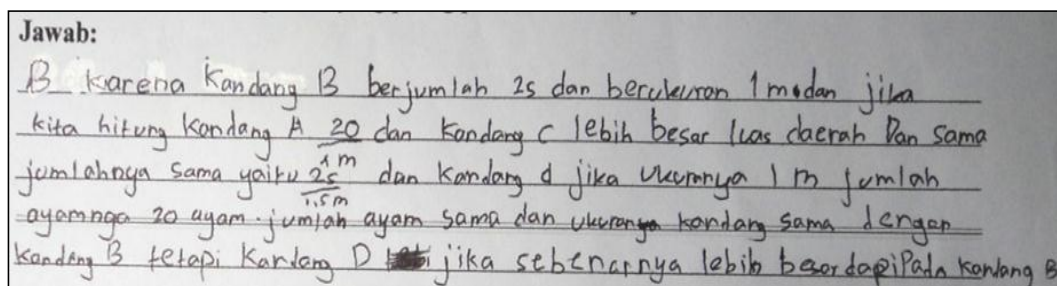 Jawab:
B karena Kandang B berjumlah 25 dan berukuran 1 m dan jika
kita hitung Kandang A 20/1 m dan Kandang C lebih besar luas daerah Dan sama
jumlahnya sama yaitu 25/1,5 m dan Kandang d jika ukurannya 1 m jumlah
ayamnga 20 ayam. jumlah ayam sama dan ukuran kandang sama dengan
Kandang B tetapi Kandang D jika sebenarnya lebih besar daripada Kandang B